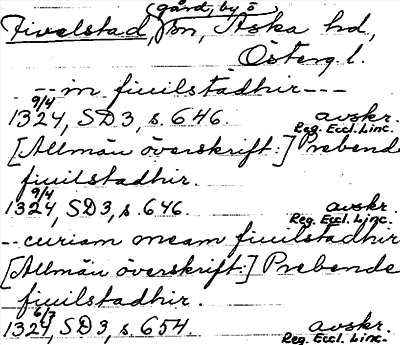 (gård, by ö
Fivelstad, sn, Aska hd,
Österg. l.
--in fiuilstadhir---
9/4
1324, SD3, s. 646. avskr.
Reg. Eccl. Linc.
[Allmän överskrift:] Prebende
fiuilstadhir.
9/4
1324, SD3, s. 646. avskr.
Reg. Eccl. Linc.
--curiam meam fiuilstadhir
[Allmän överskrift:] Prebende
fiuilstadhir.
6/7
1324, SD3, s. 654. avskr.
Reg. Eccl. Linc.